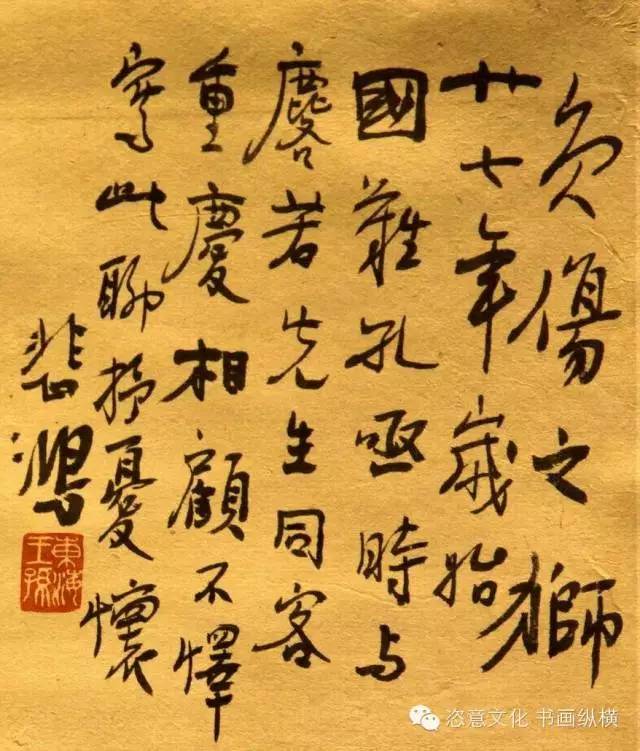 負傷之獅
廿七年歲始
國難孔亟時与
麐若先生同客
重慶相顧不懌
寫此聊抒憂懷
悲鴻
東海王孫
恣意文化 书画纵横